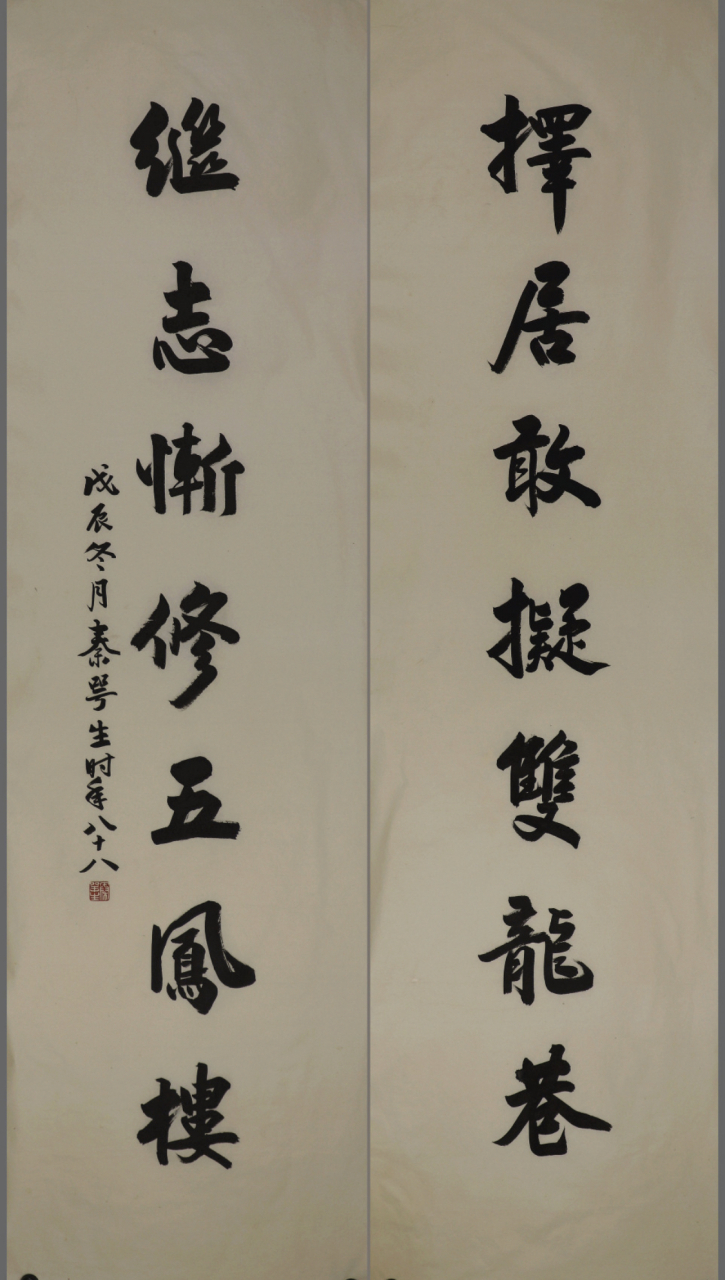 擇居敢擬雙龍巷
继志慚修五鳳樓
戊辰冬月秦咢生时年八十八